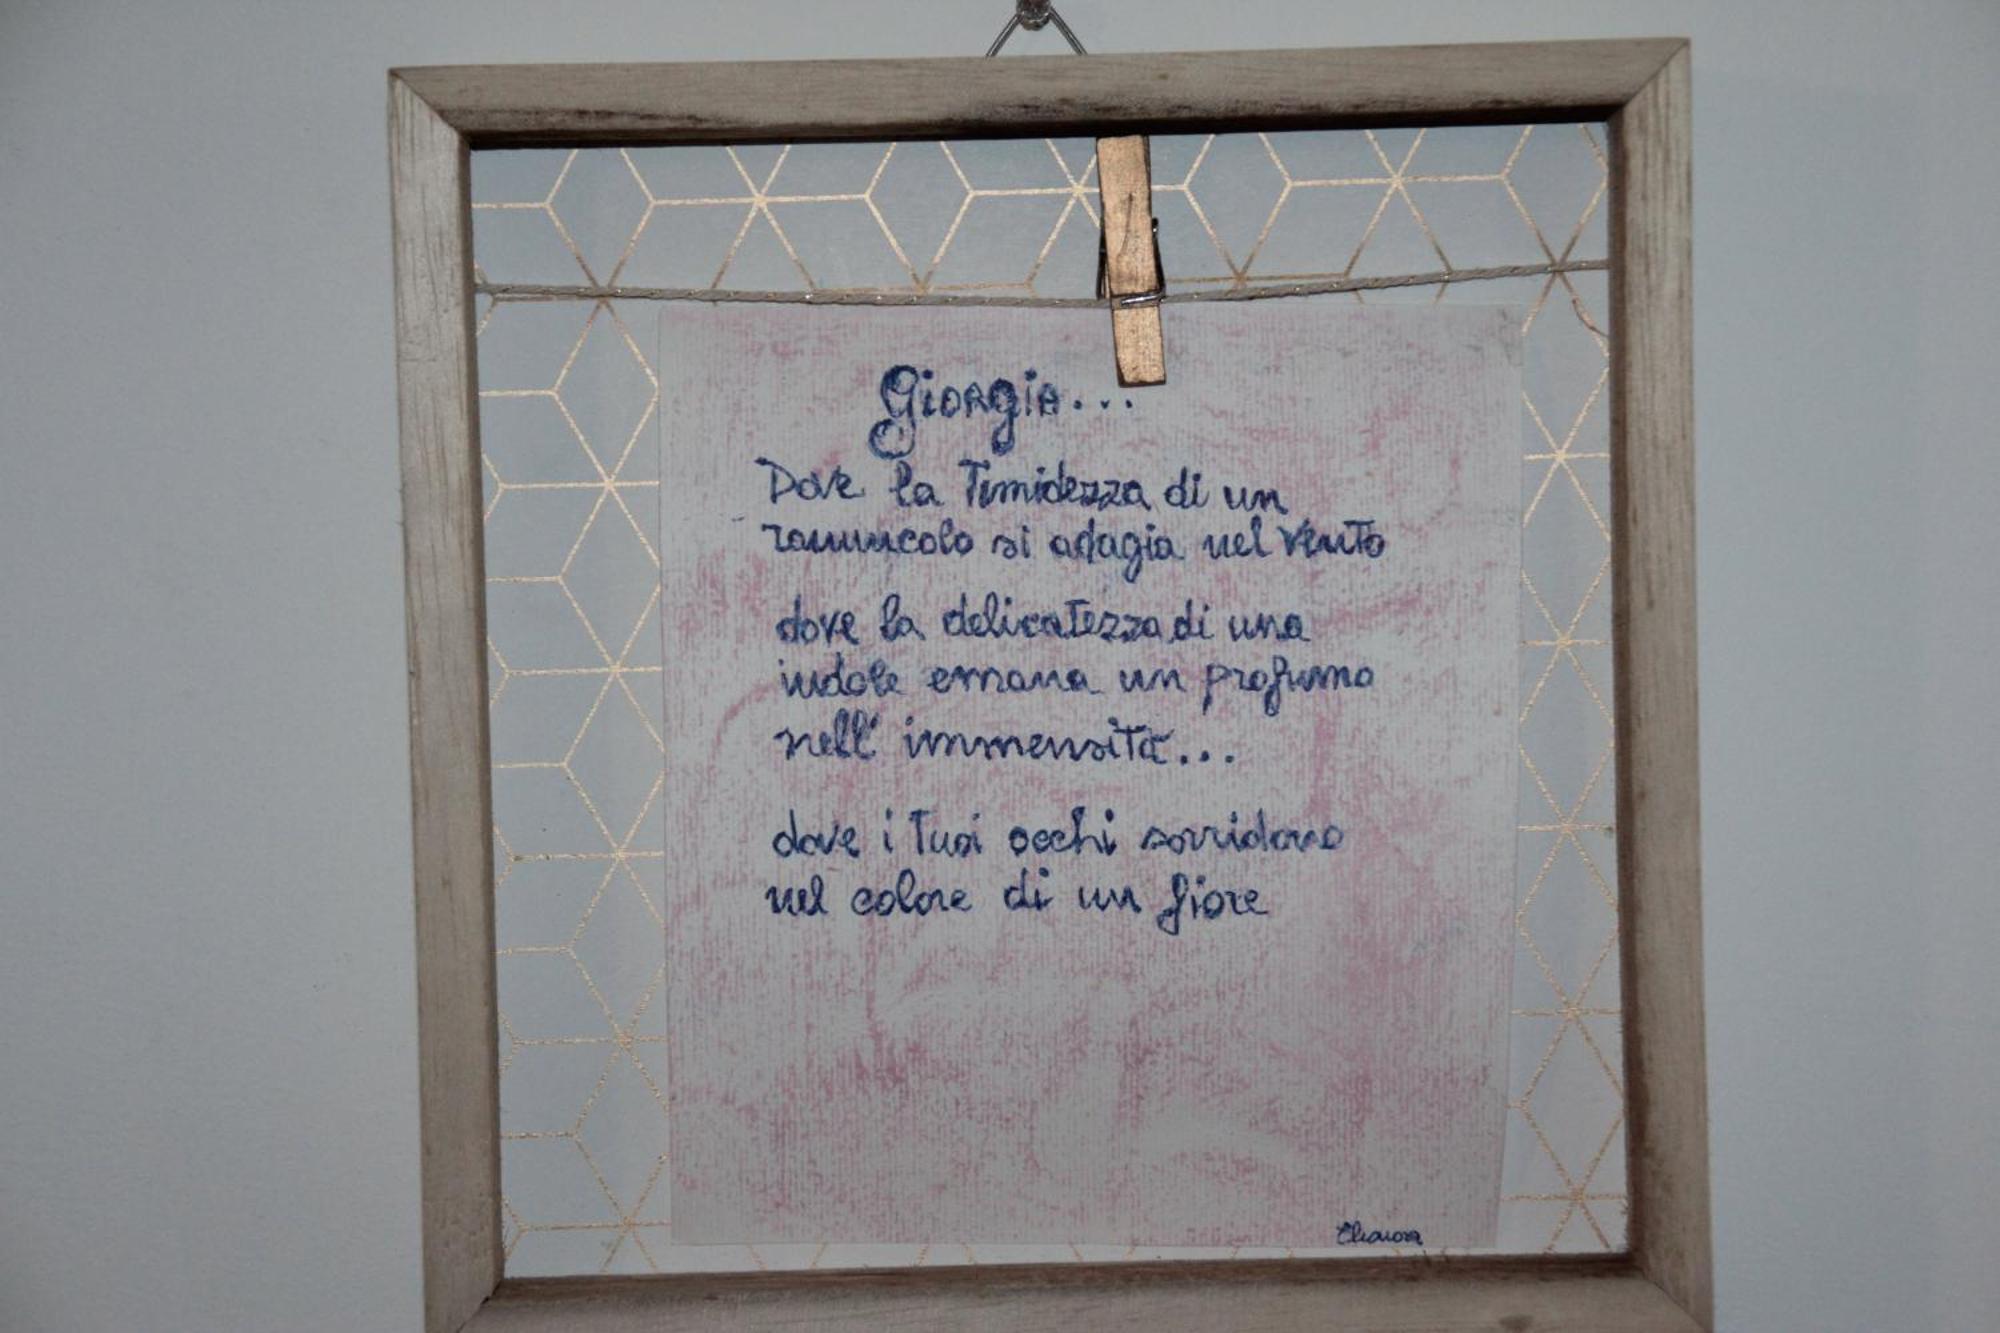 Giorgia...
Dove la Timidezza di un
ranuncolo si adagia nel vento
dove la delicatezza di una
indole emana un profumo
nell'immensità...
dove i Tuoi occhi sorridono
nel colore di un fiore
Eleonora